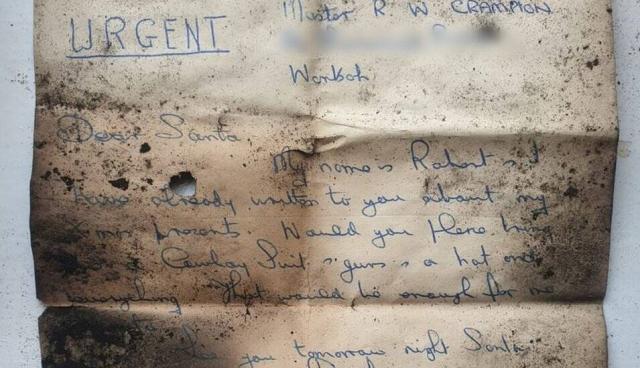 URGENT
Master R W CRAMPION
Worksoh
Dear Santa
My name is Robert & I
have already written to you about my
X mas presents. Would you please bring
a Cowboy Suit & guns & a hat and
everything That would be enough for me
See you tomorrow night Santa